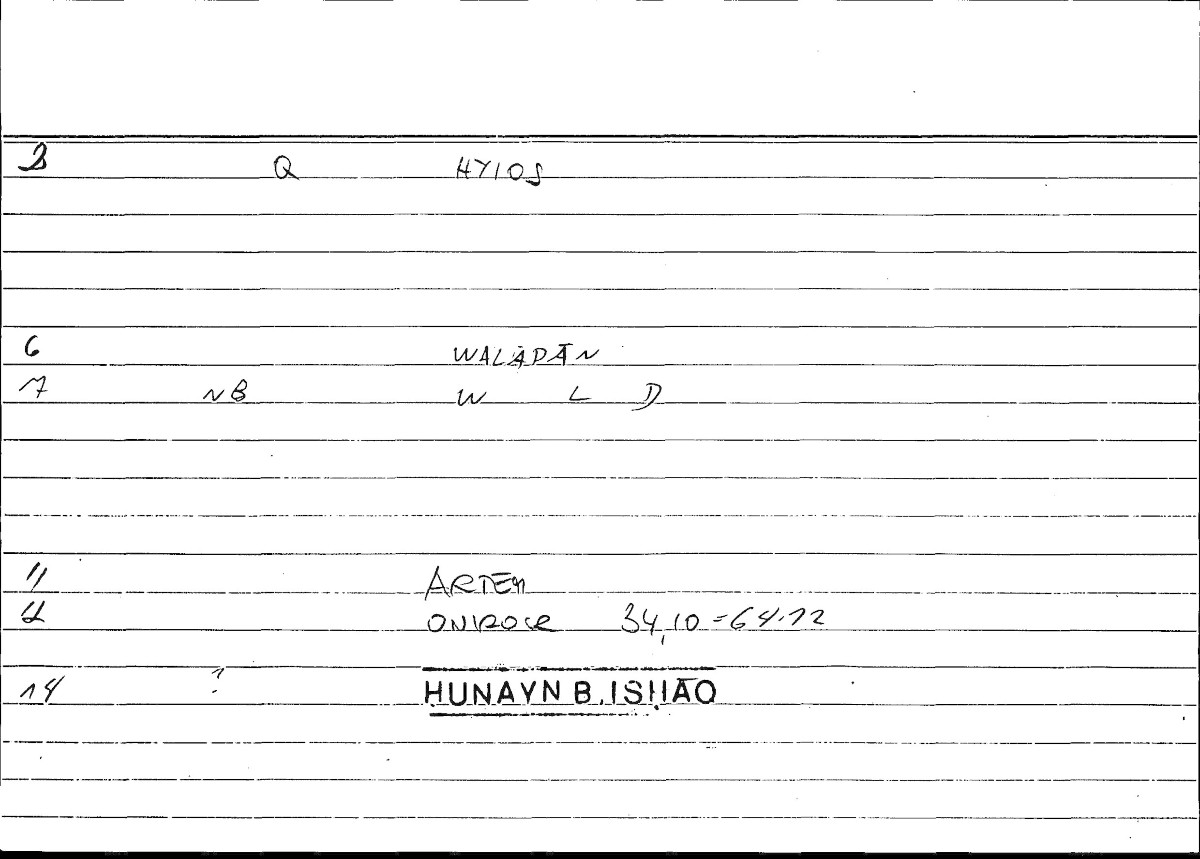 3 Q HYIOS
6 WALADĀN
7 NB W L D
11 ARTEM
12 ONIROCR 34,10 = 64.12
14 ? HUNAYN B. ISḤĀQ